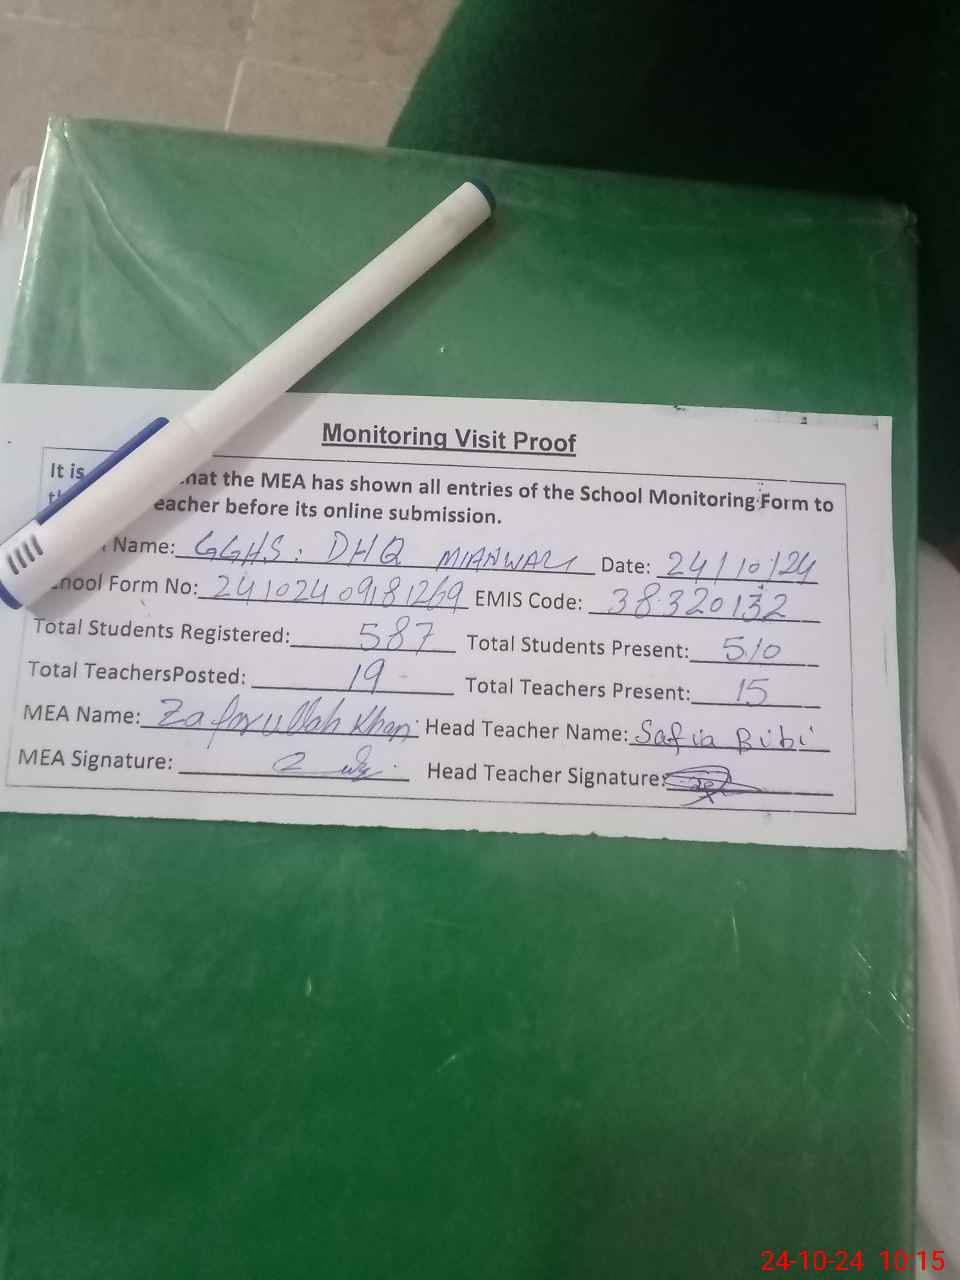 Monitoring Visit Proof
It is that the MEA has shown all entries of the School Monitoring Form to
eacher before its online submission.
Name: GGHS: DHQ MIANWALI Date: 24/10/24
hool Form No: 24102409181269 EMIS Code: 38320132
Total Students Registered: 587 Total Students Present: 510
Total TeachersPosted: 19 Total Teachers Present: 15
MEA Name: Zafarullah Khan Head Teacher Name: Safia Bibi
MEA Signature: Head Teacher Signature:
24-10-24 10:15